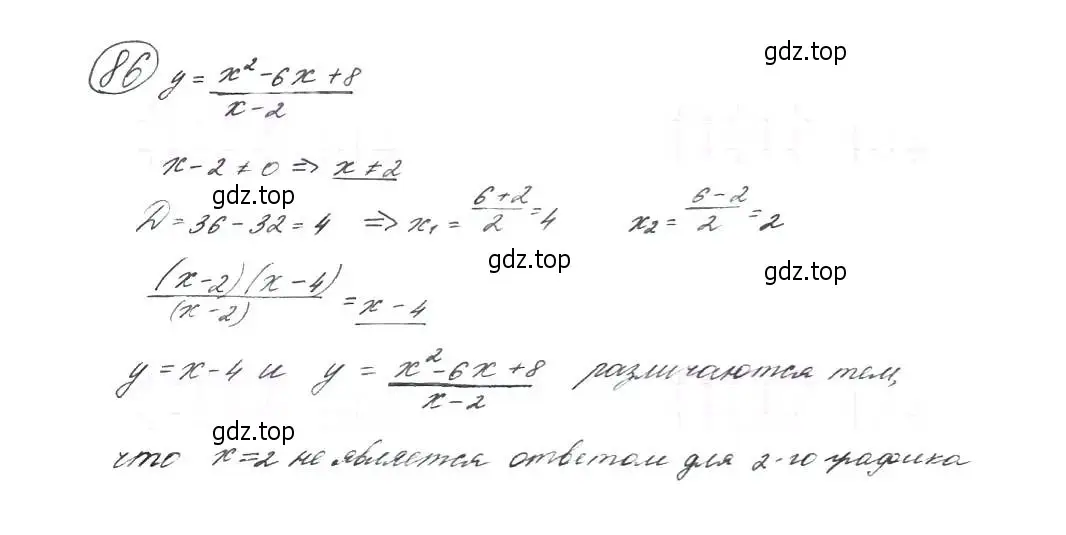 gdz.top
86 y = (x² - 6x + 8)/(x - 2)
x - 2 ≠ 0 => x ≠ 2
gdz.top
D = 36 - 32 = 4 => x₁ = (6+2)/2 = 4 x₂ = (6-2)/2 = 2
gdz.top
gdz.top
(x-2)(x-4)/(x-2) = x - 4
y = x - 4 и y = (x² - 6x + 8)/(x - 2) различаются тем,
gdz.top
что x = 2 не является ответом для 2-го графика